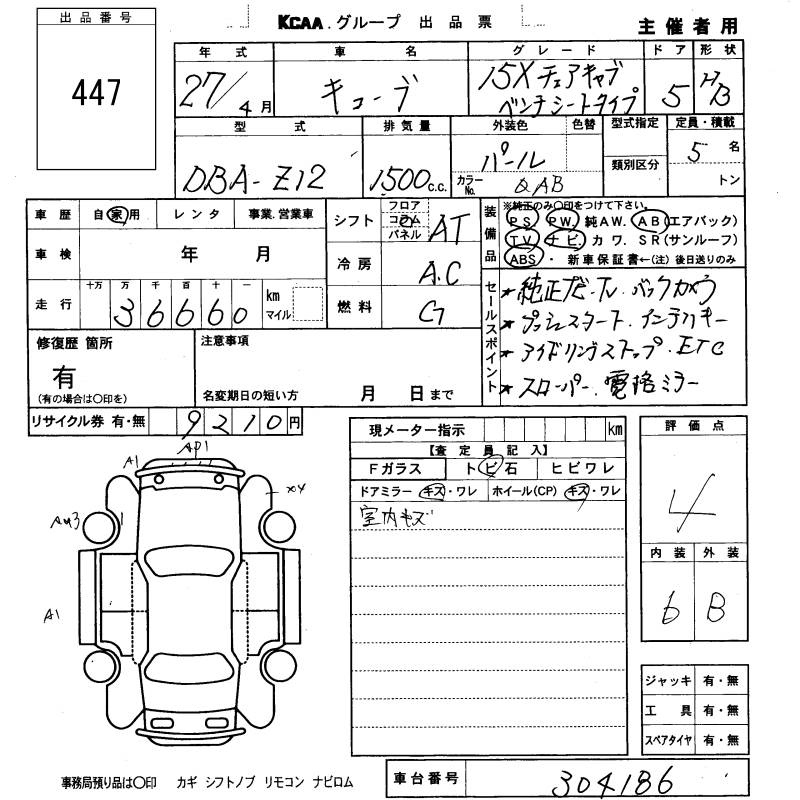 出品番号
447
KCAA グループ 出品票
主催者用
年式 車名 グレード ドア 形状
27/4月 キューブ 15X チェアキャブ ベンチシートタイプ 5 HB
型式 排気量 外装色 色替 型式指定 定員・積載
DBA-Z12 1500c.c. パール 5名
カラーNo. QAB 類別区分 トン
車歴 自家用 レンタ 事業.営業車
車検 年 月
走行 十万 万 千 百 十 一
36660 km マイル
シフト フロア コラム パネル AT
冷房 A.C
燃料 G
装備品 ※純正のみ○印をつけて下さい。
PS PW 純AW. AB(エアバック)
TV ナビ カワ. SR(サンルーフ)
ABS・新車保証書←(注)後日送りのみ
セールスポイント
*純正ナビ.TV.バックカメラ
*プッシュスタート.インテリキー
*アイドリングストップ.ETC
*スローパー.電格ミラー
修復歴 箇所
有
(有の場合は○印を)
注意事項
名変期日の短い方 月 日まで
リサイクル券 有・無 9210円
現メーター指示 km
【査定員記入】
Fガラス トビ石 ヒビワレ
ドアミラー キズ・ワレ ホイール(CP) キズ・ワレ
室内キズ
評価点
4
内装 外装
6 B
ジャッキ 有・無
工具 有・無
スペアタイヤ 有・無
AP1
A1
X4
AU3
A1
事務局預り品は○印 カギ シフトノブ リモコン ナビロム
車台番号 304186